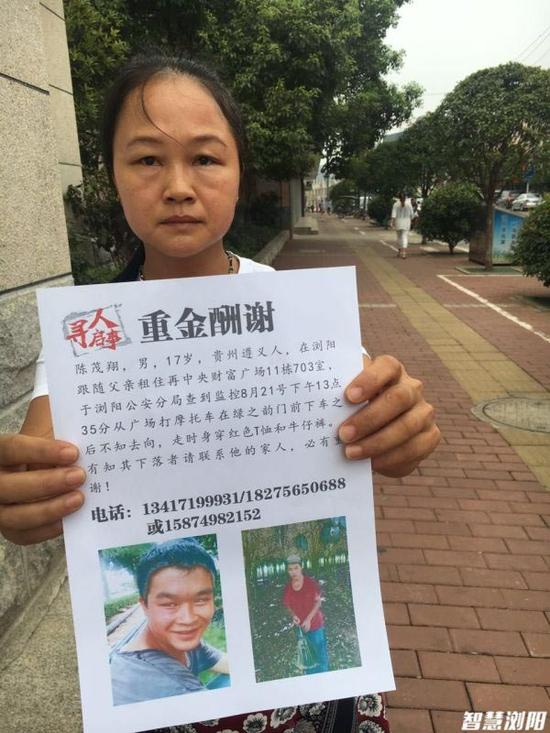 寻人启事
重金酬谢
陈茂翔，男，17岁，贵州遵义人，在浏阳
跟随父亲租住再中央财富广场11栋703室，
于浏阳公安分局查到监控8月21号下午13点
35分从广场打摩托车在绿之韵门前下车之
后不知去向，走时身穿红色T恤和牛仔裤。
有知其下落者请联系他的家人，必有重
谢！
电话：13417199931/18275650688
或15874982152
智慧浏阳